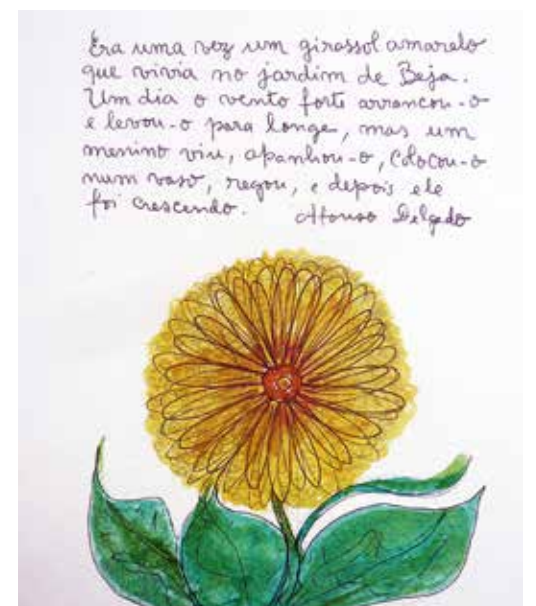 Era uma vez um girassol amarelo
que vivia no jardim de Beja.
Um dia o vento forte arrancou-o
e levou-o para longe, mas um
menino viu, apanhou-o, colocou-o
num vaso, regou, e depois ele
foi crescendo. Afonso Delgado